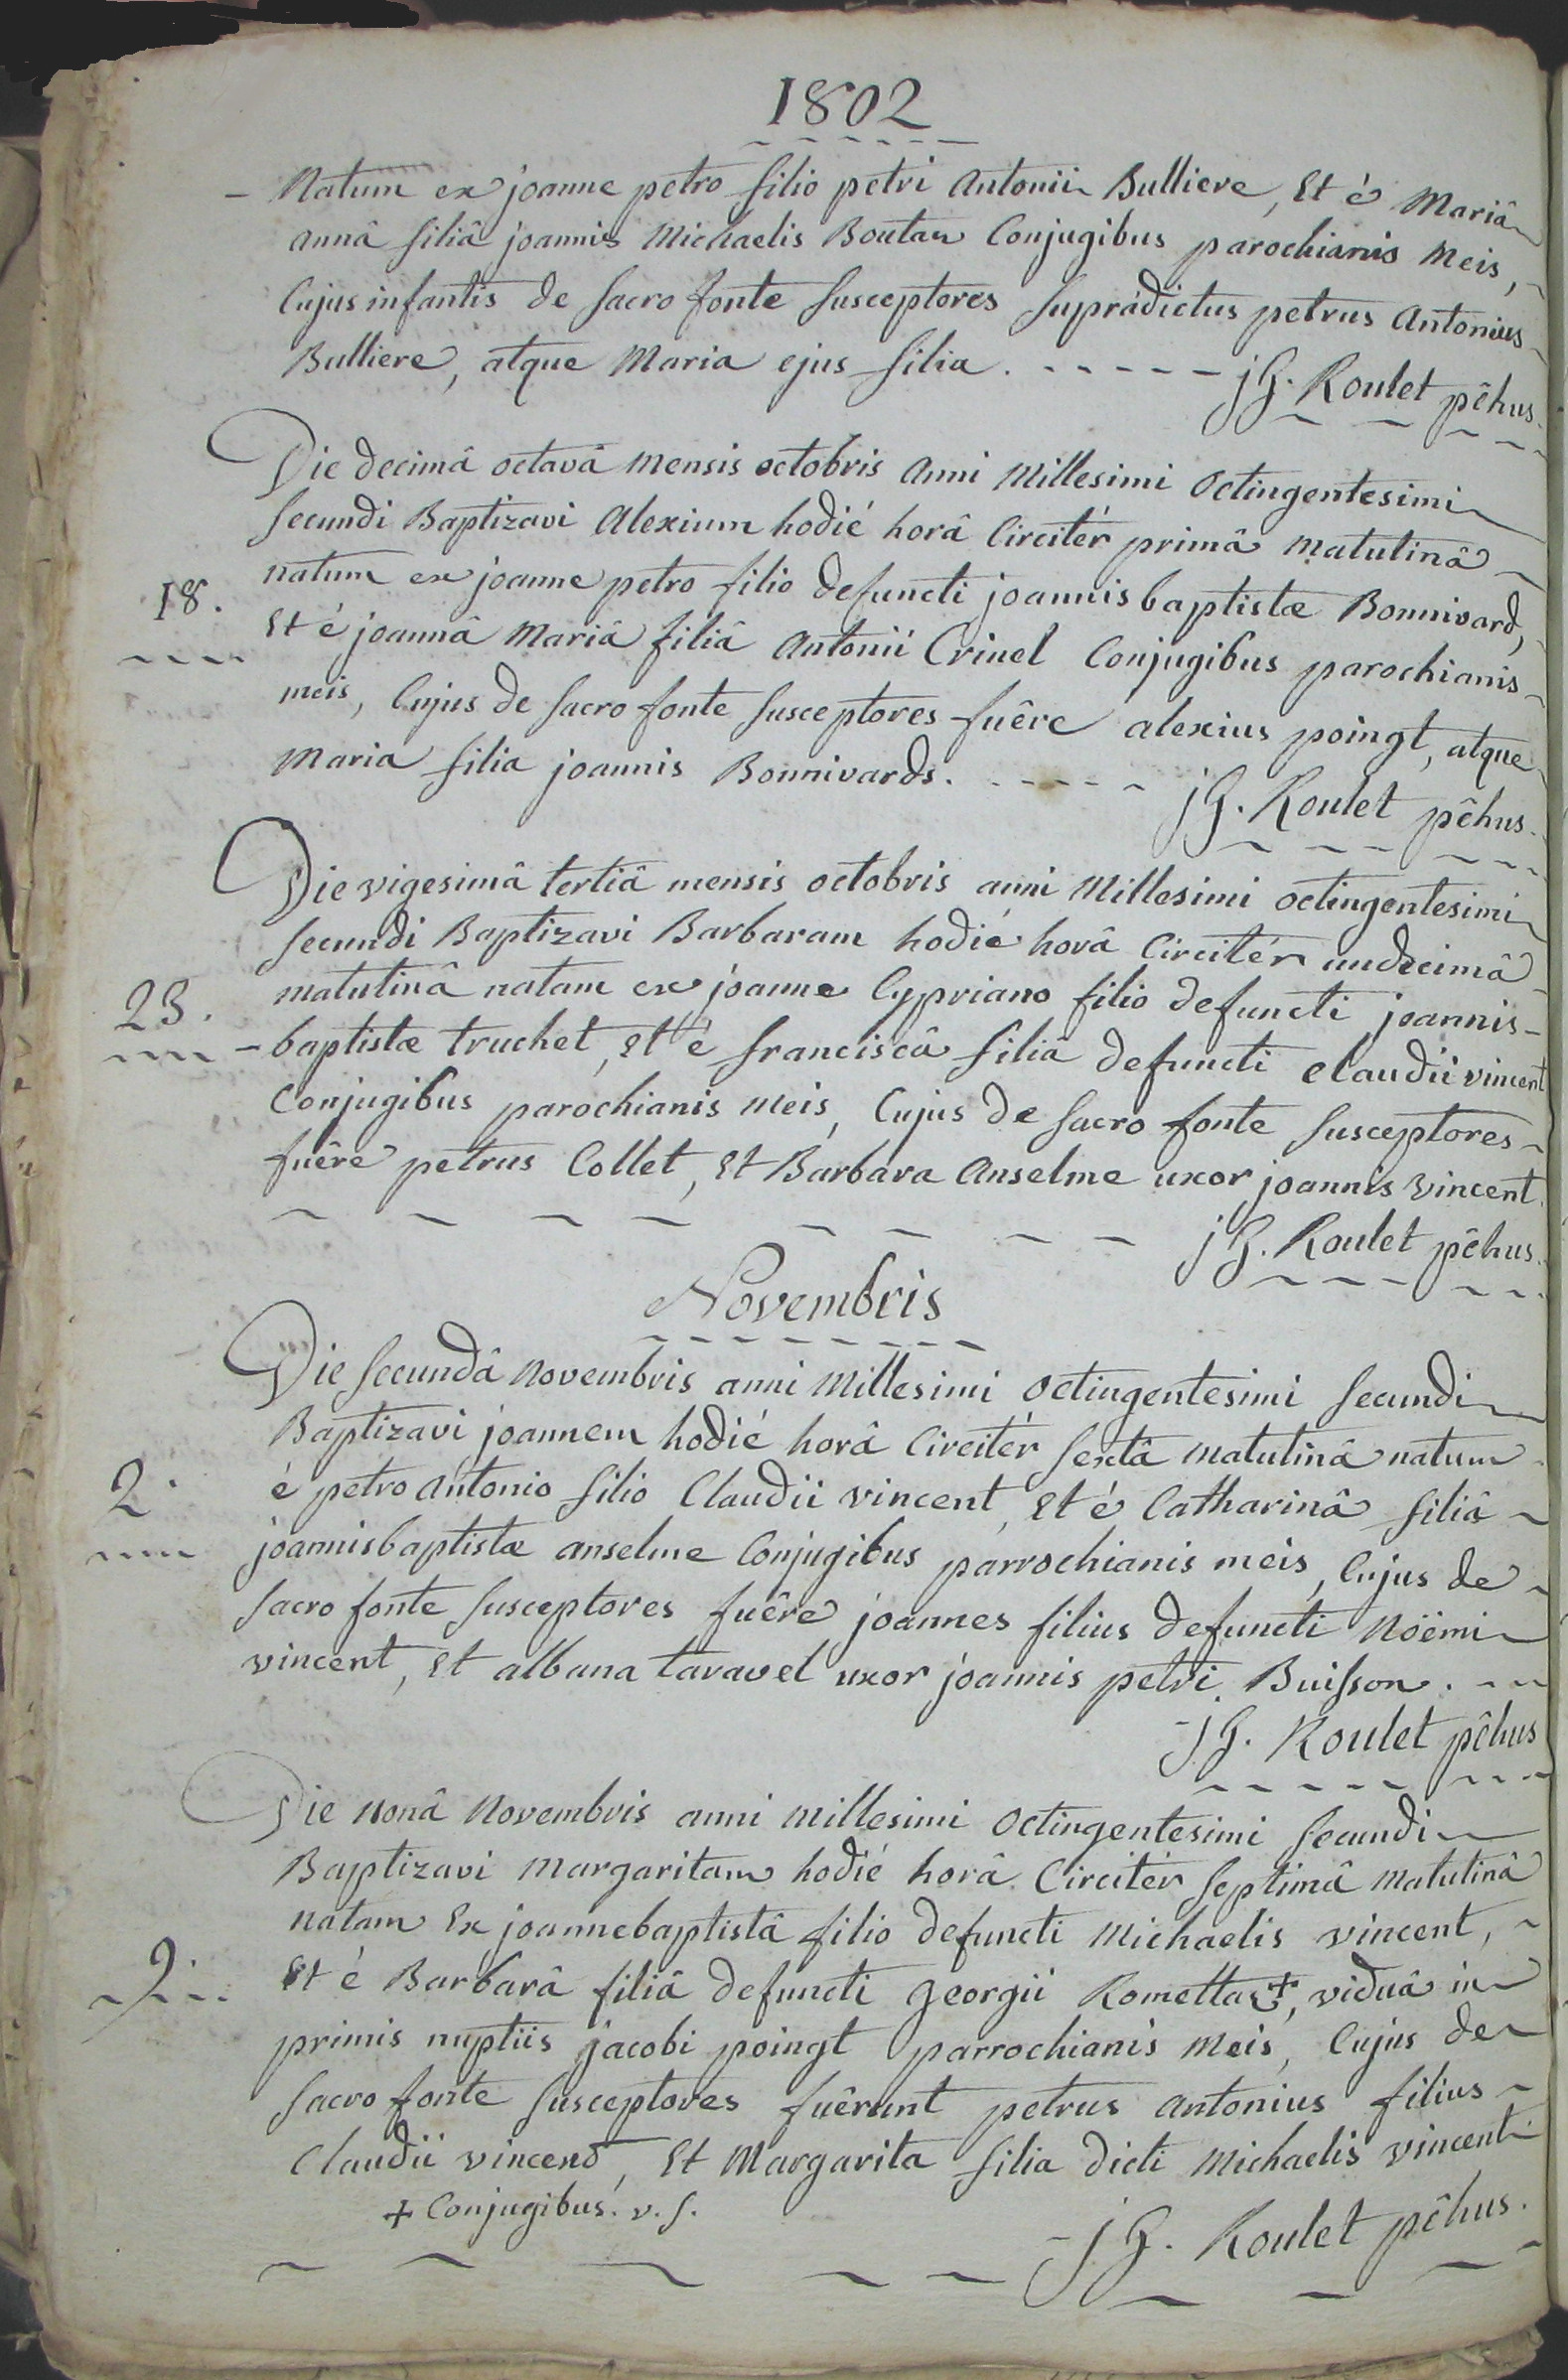 1802
Natum ex joanne petro filio petri Antonii Bulliere, Et é Mariâ
annâ filiâ joannis Michaelis Boutaz Conjugibus parochianis Meis,
Cujus infantis de sacro fonte susceptores supradictus petrus Antonius
Bulliere, atque Maria ejus filia.
jG. Roulet pêhus.
Die decimâ octavâ mensis octobris anni Millesimi Octingentesimi
secundi Baptizavi Alexium hodié horâ Circitér primâ matutinâ
18.
natum ex joanne petro filio defuncti joannis baptistæ Bonnivard,
Et é joannâ Mariâ filiâ Antonii Crinel Conjugibus parochianis
meis, Cujus de sacro fonte susceptores fuêre alexius poingt, atque
Maria filia joannis Bonnivards.
jG. Roulet pêhus.
Die vigesimâ tertiâ mensis octobris anni Millesimi octingentesimi
secundi Baptizavi Barbaram hodié horâ Circitér undecimâ
23.
matutinâ natam ex joanne Cypriano filio defuncti joannis-
-baptistæ truchet, Et é franciscâ filiâ defuncti claudii vincent
Conjugibus parochianis meis, Cujus de sacro fonte susceptores
fuêre petrus Collet, Et Barbara Anselme uxor joannis vincent.
jG. Roulet pêhus.
Novembris
Die secundâ Novembris anni Millesimi Octingentesimi secundi
Baptizavi joannem hodié horâ Circitér sextâ matutinâ natum
2.
é petro antonio filio Claudii vincent, Et é Catharinâ filiâ
joannisbaptistæ anselme Conjugibus parrochianis meis, Cujus de
sacro fonte susceptores fuêre joannes filius defuncti Nöëmi
vincent, Et albana taravel uxor joannis petri Buisson.
jG. Roulet pêhus
Die nonâ Novembris anni millesimi Octingentesimi secundi
Baptizavi margaritam hodié horâ Circitér septimâ matutinâ
natam Ex joannebaptistâ filio defuncti Michaelis vincent,
9.
Et é Barbarâ filiâ defuncti georgii Romettaz+, viduâ in
primis nuptiis jacobi poingt parrochianis meis, Cujus de
sacro fonte susceptores fuêrunt petrus antonius filius
Claudii vincend, Et Margarita filia dicti Michaelis vincent
+ Conjugibus. v. s.
jG. Roulet pêhus.